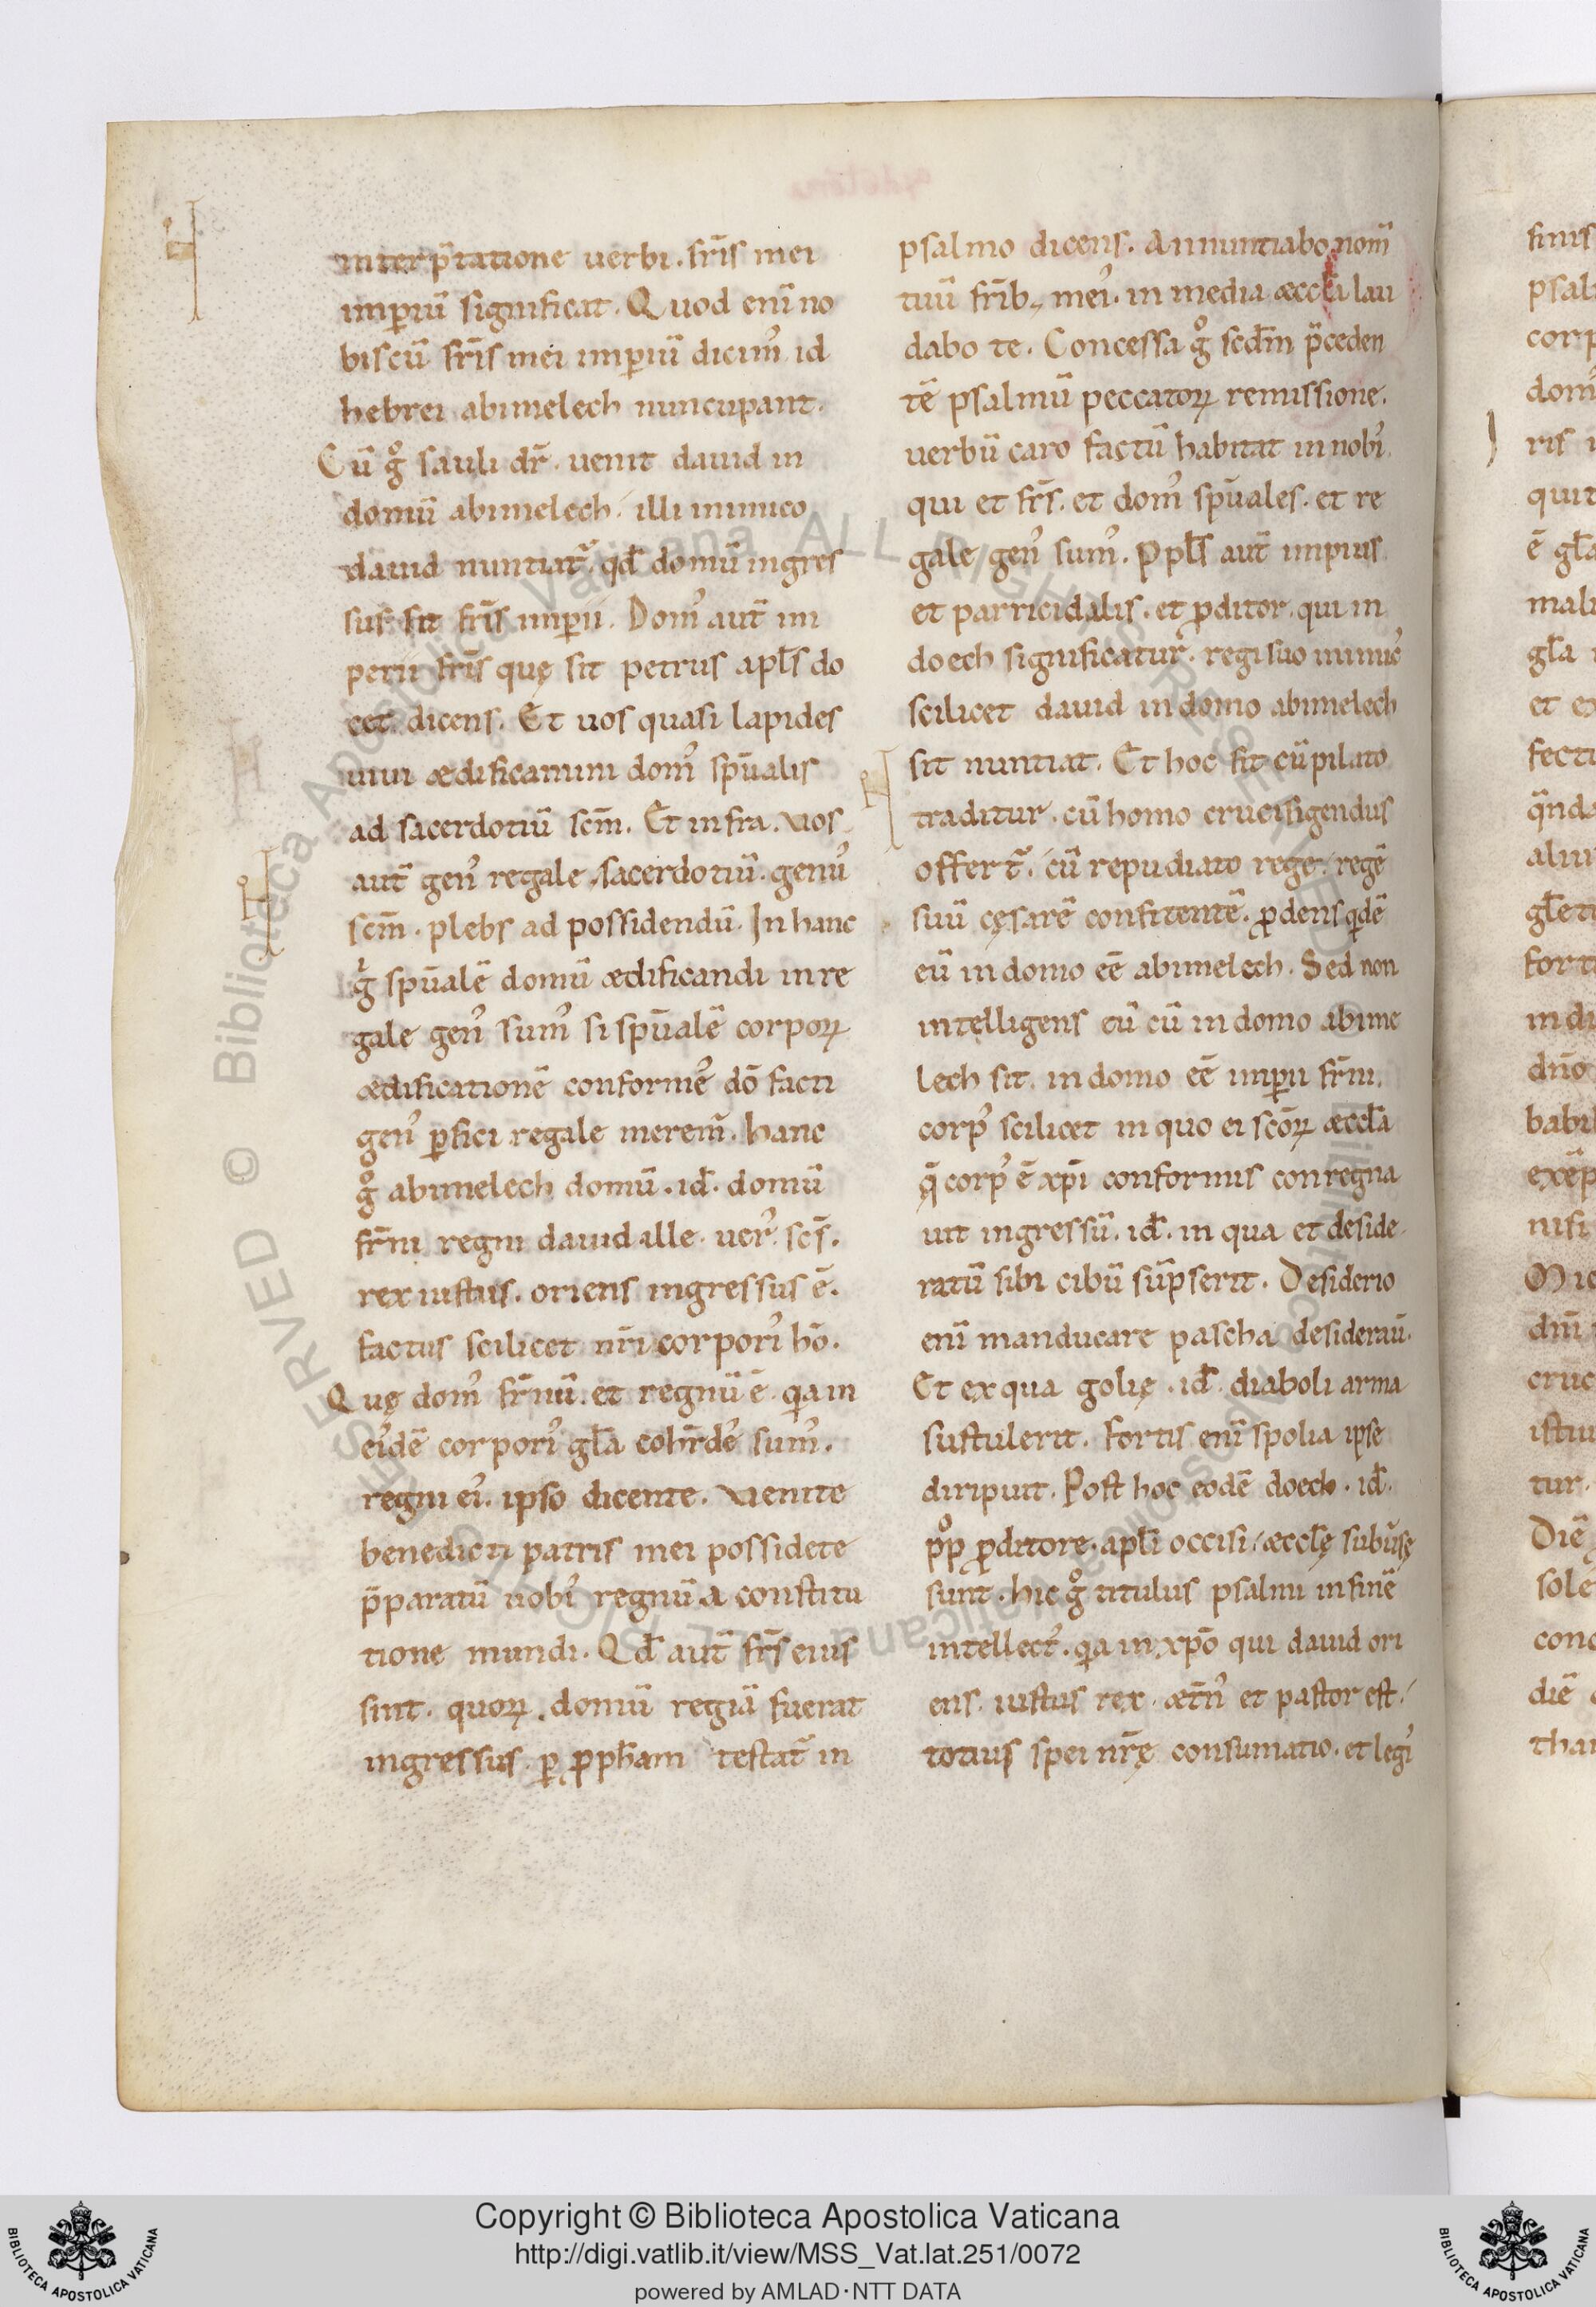 interp̄tatione uerbi. fr̄is mei
imp̱iū significat. Quod enī no
biscū fr̄is mei imp̱iū dicim᾽ id
hebrei abimelech nuncupant.
Cū g͛ͦ sauli dr̄. uenit dauid in
domū abimelech. illi inimico
dauid nuntiat᷑. qđ domū ingres
sus sit fr̄is imp̱ii. Dom᾽ aut̄ im
perii fr̄is quę sit petrus apl̄s do
cet dicens. Et uos quasi lapides
uiui ædificamini dom᾽ sp̄ualis
ad sacerdotiū sc̄m. Et infra. Vos
aut̄ gen᾽ regale, sacerdotiū. genu᾽
sc̄m. plebs ad possidendū. In hanc
gͥ sp̄ualē domū ædificandi in re
gale gen᾽ sum᾽ si sp̄ualē corpoꝝ
ædificationē conforme᾽ dō facti
gen᾽ ꝑfici regale merem᷑. hanc
gͦ abimelech domū. id̄. domū
fr̄ni regni dauid ille. uer᾽. sc̄s.
rex iustus. oriens ingressus ē.
factus scilicet nr̄i corpori᾽ hō.
Quę dom᾽ fr̄nū. et regnū ē. q̱a in
ei᾽dē corpori᾽ gl̄a cohr̄de᾽ sum᾽.
regni ei᾽. ipso dicente. Venite
benedicti patris mei possidete
p̄paratū uobi᾽ regnū a constitu
tione mundi. Qd̄ aut̄ fr̄s eius
sint. quoꝝ. domū regiā fuerat
ingressus. ꝑ ꝓph̄am testat᷑ in
psalmo dicens. Annuntiabo nom̄
tuū fr̄ib; mei᾽. in media æccl̄a lau
dabo te. Concessa gͦ scd̄m p̄ceden
tē psalmū peccatoꝝ remissione.
uerbū caro factū habitat in nobi᾽.
qui et fr̄s. et dom᾽ sp̄uales. et re
gale gen᾽ sum᾽. Ppl̄s aut̄ impius
et parricidalis. et ꝓditor. qui in
doech significatur. regi suo inimic᾽
scilicet dauid in domo abimelech
sit nuntiat. Et hoc fit cū pilato
traditur. cū homo crucifigendus
offert᷑. cū repudiato rege. regē
suū cęsarē confitentē. ꝓdens qdē
eū in domo eē abimelech. Sed non
intelligens eū cū in domo abime
lech sit. in domo eē imp̱ii fr̄ni.
corp᾽ scilicet in quo ei sc̄oꝝ æccl̄a
q̄ corp᾽ ē xp̄i conformis conregna
uit ingressū. id̄. in qua et deside
ratū sibi cibū sūpserit. Desiderio
enī manducare pascha desideraui.
Et ex qua golię. id̄. diaboli arma
sustulerit. Fortis enī spolia ipse
diripuit. Post hoc eodē doech. id̄.
pͦp ꝓditore. apl̄i occisi. æccl̄ę subu᾽sę
sunt. hic gͦ titulus psalmi in finē
intellect᾽. q̱a in xp̄o qui dauid ori
ens. iustus rex. æt̄n᾽ et pastor est.
totius spei nr̄ę consumatio. et legi᾽
Copyright © Biblioteca Apostolica Vaticana
http://digi.vatlib.it/view/MSS_Vat.lat.251/0072
powered by AMLAD·NTT DATA
BIBLIOTECA APOSTOLICA VATICANA
BIBLIOTECA APOSTOLICA VATICANA